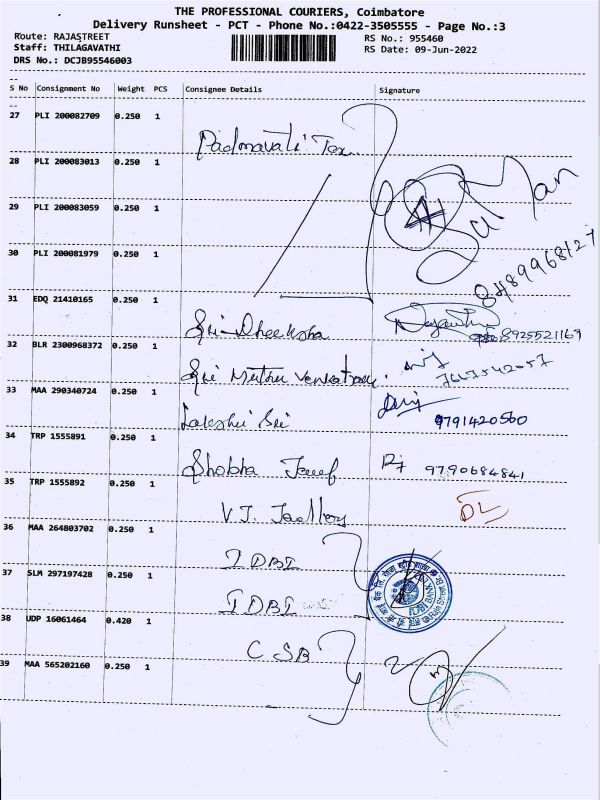 THE PROFESSIONAL COURIERS, Coimbatore
Delivery Runsheet - PCT - Phone No.:0422-3505555 - Page No.:3
Route: RAJASTREET
Staff: THILAGAVATHI
DRS No.: DCJB95546003
RS No.: 955460
RS Date: 09-Jun-2022
S No Consignment No Weight PCS Consignee Details Signature
27 PLI 200082709 0.250 1 Padmavati Tex
28 PLI 200083013 0.250 1
29 PLI 200083059 0.250 1
30 PLI 200081979 0.250 1
8489968127
31 EDQ 21410165 0.250 1 Sri-Dheeksha
8925521169
32 BLR 2300968372 0.250 1 Sri Muthu
33 MAA 290340724 0.250 1 Lakshmi Sri 9791420560
34 TRP 1555891 0.250 1 Shobha 9790684841
35 TRP 1555892 0.250 1 V.J. DL
36 MAA 264803702 0.250 1 IDBI
37 SLM 297197428 0.250 1 IDBI
IDBI BANK
38 UDP 16061464 0.420 1 CSB
39 MAA 565202160 0.250 1